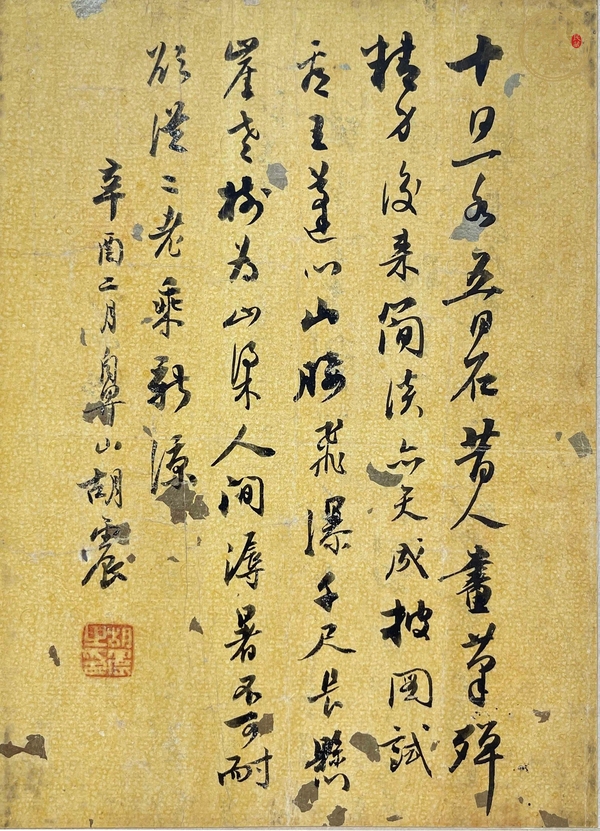 十日一水五日石昔人畫筆殫
精力後來簡淡亦天成披圖試
看王蓬心山腰飛瀑千尺長懸
崖老樹為山梁人間溽暑不可耐
欲從二老乘新涼
辛酉二月鼻山胡震